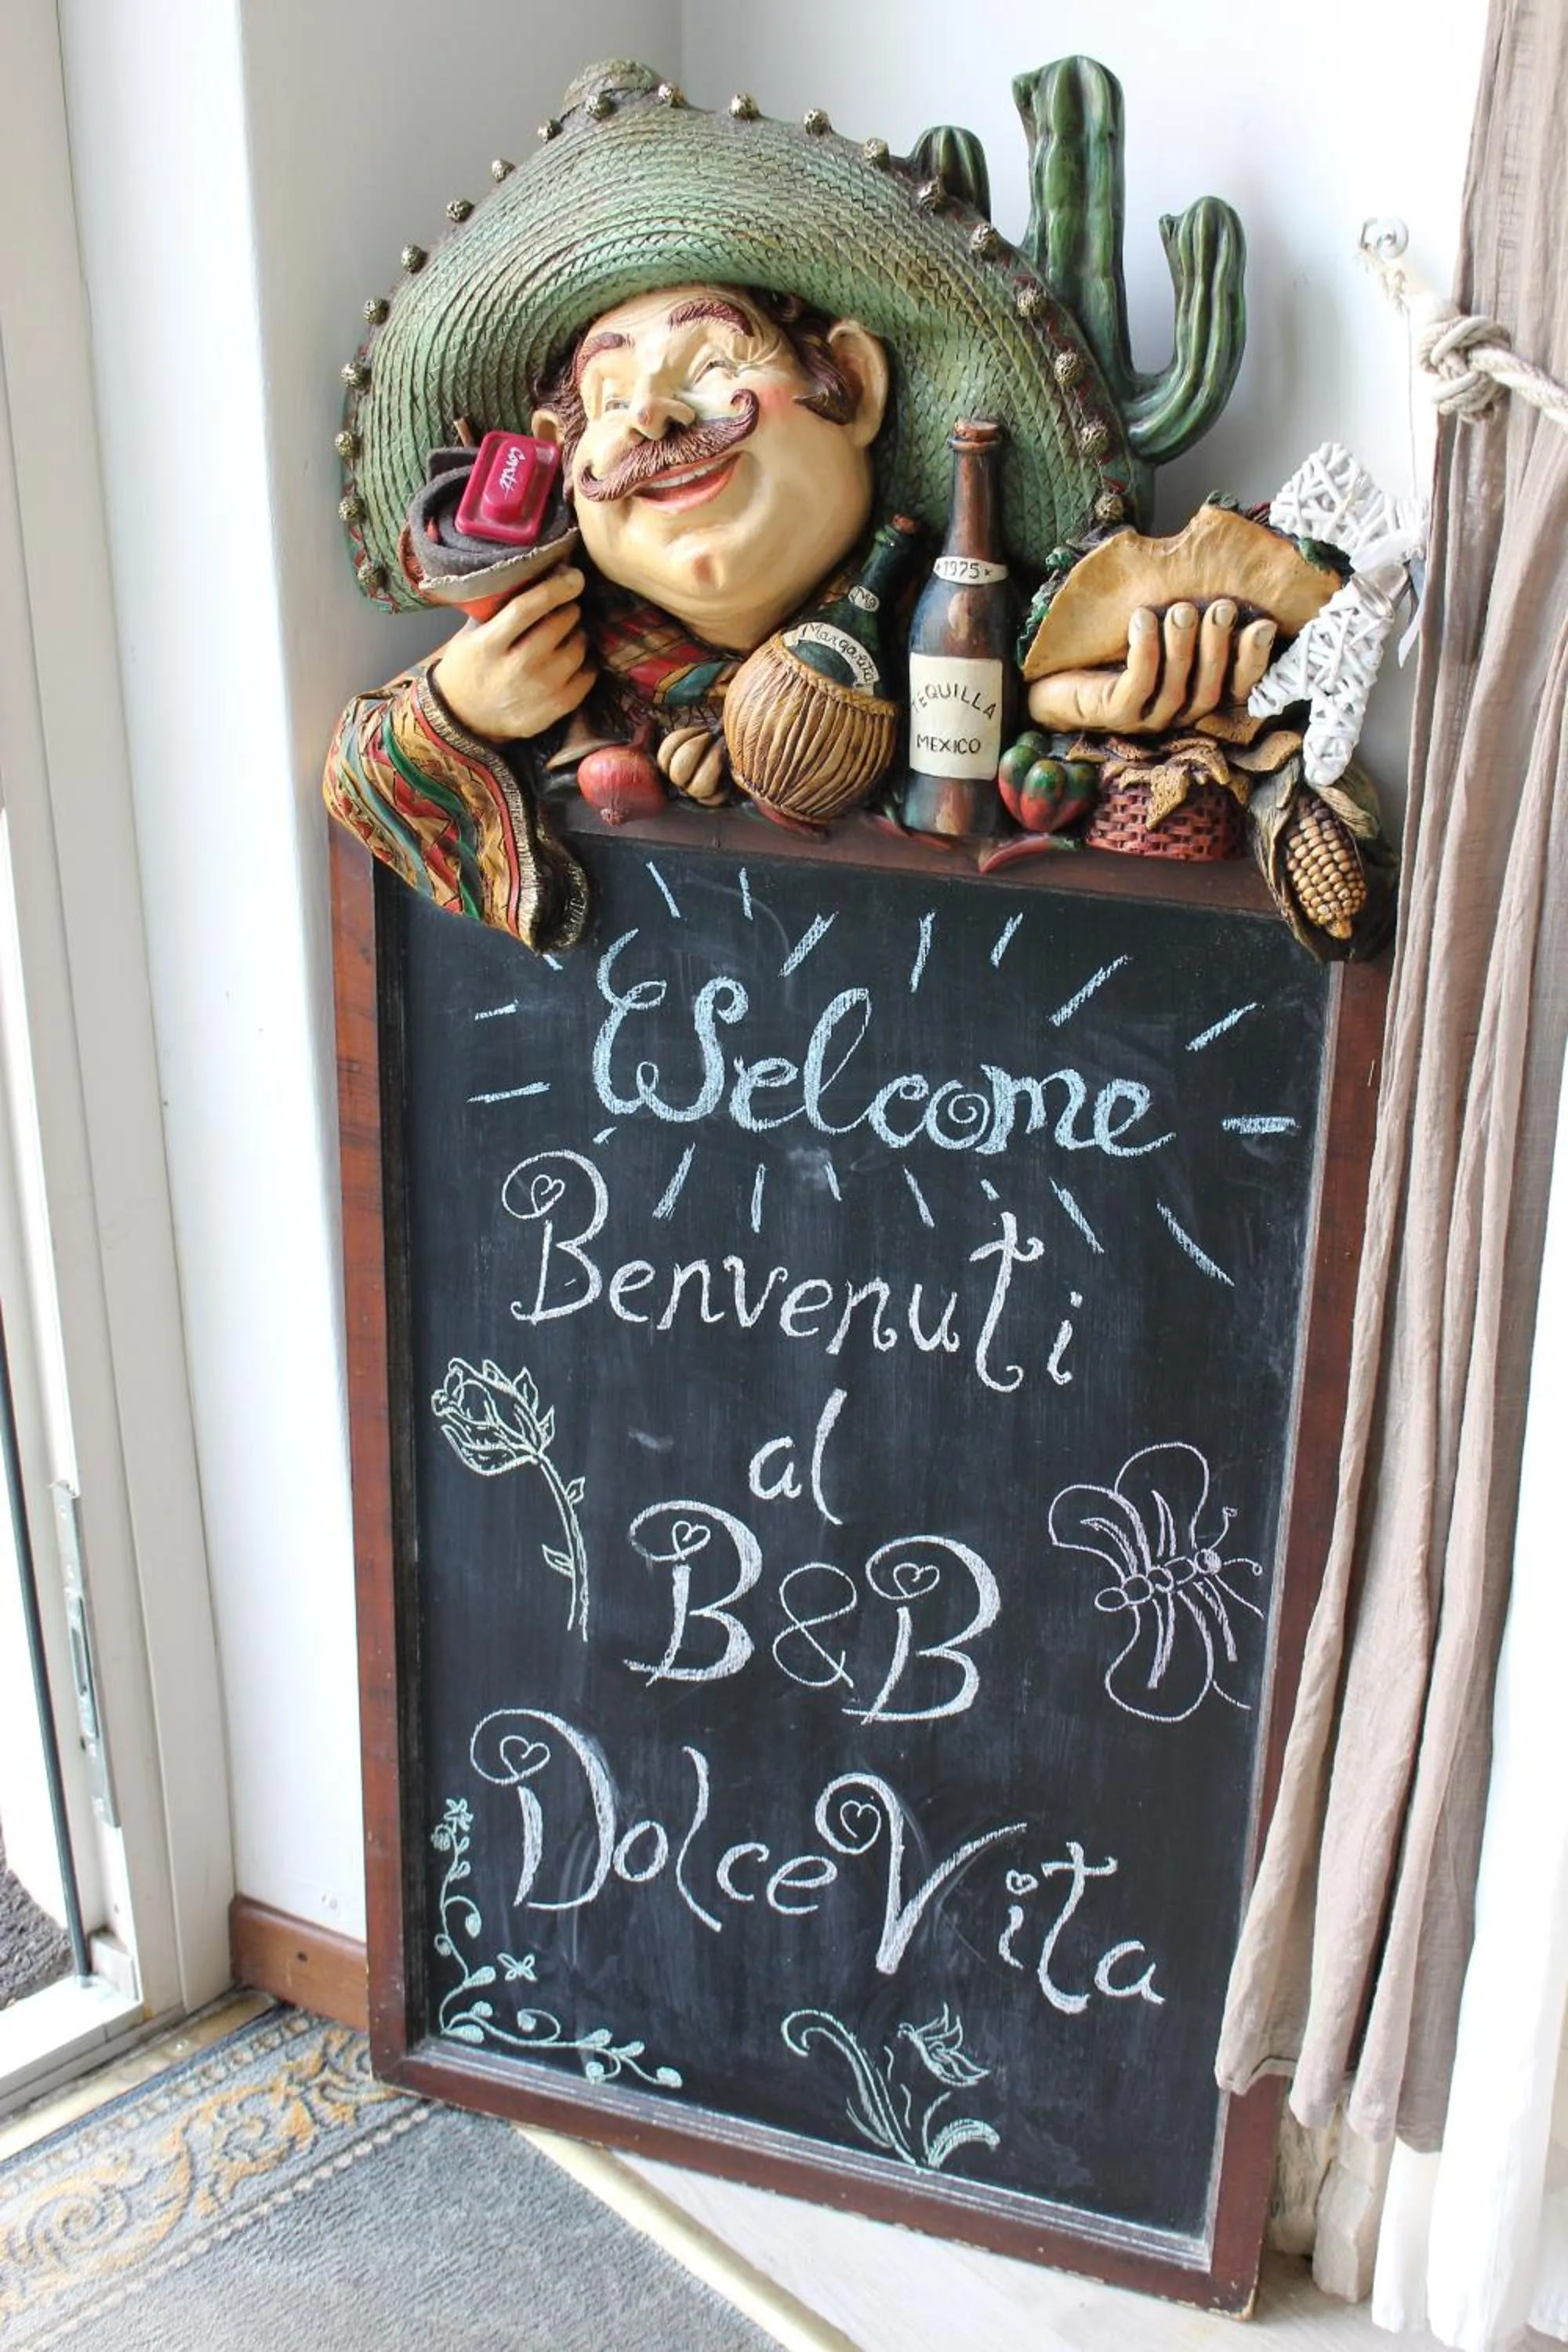 *1975*
Margarita
TEQUILLA
MEXICO
Welcome
Benvenuti
al
B&B
Dolce Vita